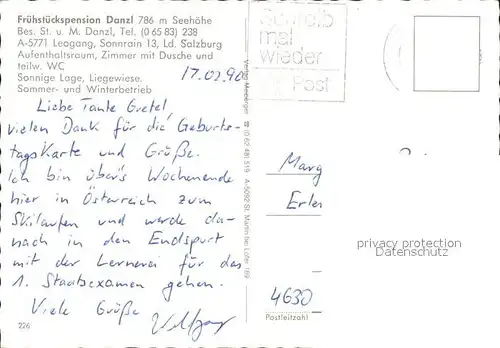 Frühstückspension Danzl 786 m Seehöhe
Bes. St. u. M. Danzl, Tel. (0 65 83) 238
A-5771 Leogang, Sonnrain 13, Ld. Salzburg
Aufenthaltsraum, Zimmer mit Dusche und
teilw. WC
Sonnige Lage, Liegewiese.
Sommer- und Winterbetrieb
17.02.90
Liebe Tante Gretel,
vielen Dank für die Geburts-
tagskarte und Grüße.
Ich bin über's Wochenende
hier in Österreich zum
Skilaufen und werde da-
nach in den Endspurt
mit der Lernerei für das
1. Staatsexamen gehen.
Viele Grüße
226
Schreib
mal
wieder
Post
A-5092 St. Martin bei Lofer 169
Marg
Erlen
privacy protection
Datenschutz
4630
Postleitzahl